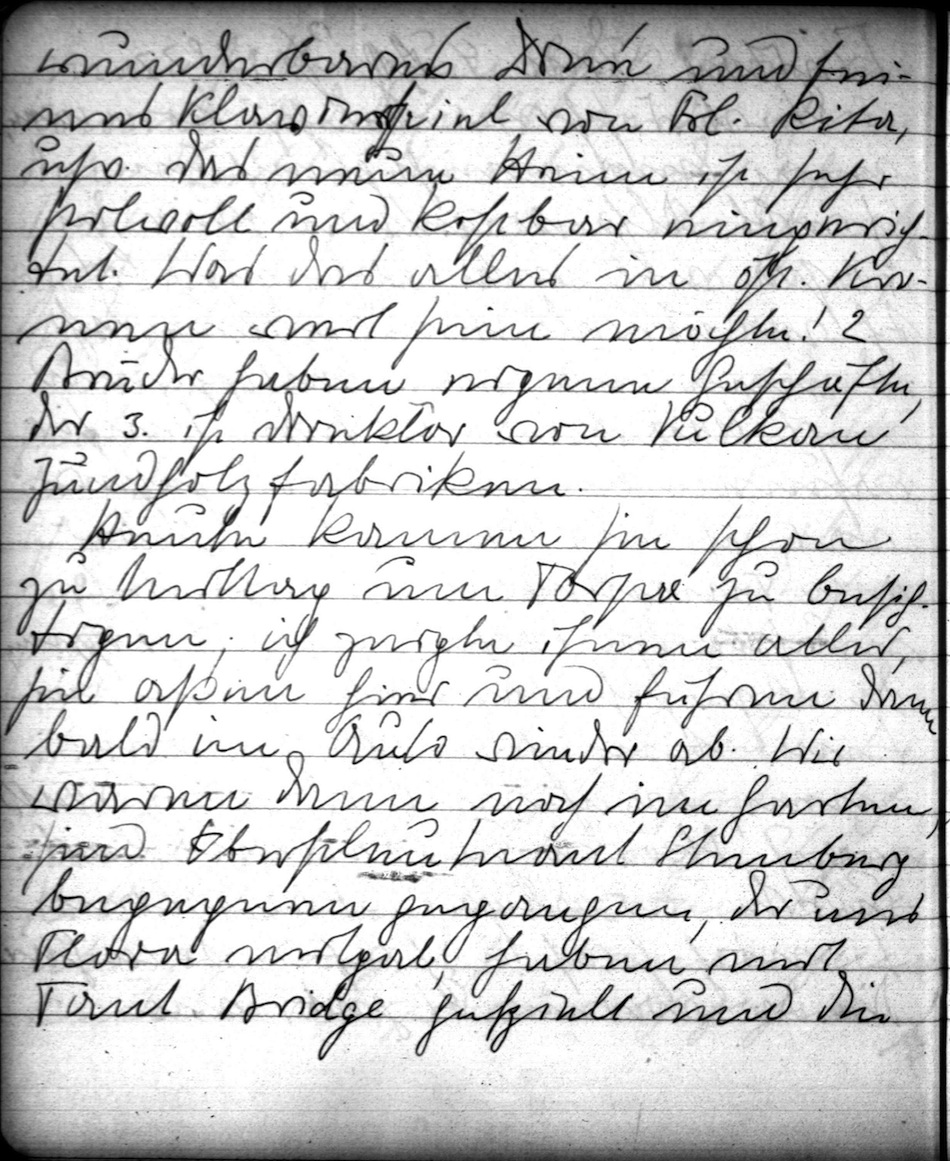 wunderbares Trio und fei-
nes Klavierspiel von Frl. Rita,
usw. Das neue Heim ist sehr
stilvoll und kostbar eingerich-
tet. Was das alles in öst. Kro-
nen wert sein möchte! 2
Brüder haben eigene Geschäfte,
der 3. ist Direktor von Vulkan
Zündholzfabriken.
Heute kamen sie schon
zu Mittag um Torpa zu besich-
tigen, ich zeigte ihnen alles,
sie aßen hier und fuhren dann
bald im Auto wieder ab. Wir
waren dann noch im Garten,
sind Oberstleutnant Stenburg
begegnen gegangen, der uns
Flora mitgab, haben mit
Tant Bridge gespielt und die